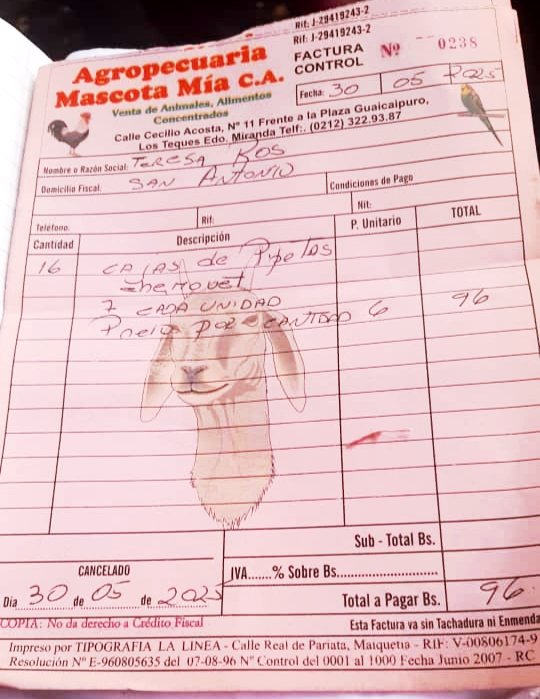 Rif: J-29419243-2
Rif: J-29419243-2
Agropecuaria
Mascota Mía C.A.
Venta de Animales, Alimentos
Concentrados
FACTURA
CONTROL
Nº 0238
Fecha: 30 05 2025
Calle Cecilio Acosta, Nº 11 Frente a la Plaza Guaicaipuro,
Los Teques Edo. Miranda Telf:. (0212) 322.93.87
Nombre o Razón Social: TERESA KOS
Domicilio Fiscal: SAN ANTONIO
Condiciones de Pago
Teléfono: Rif: Nit:
Cantidad Descripción P. Unitario TOTAL
16 CAJAS de Pipetas
7 CADA UNIDAD
Precio POR CANTIDAD 6 96
Sub - Total Bs.
CANCELADO
IVA.......% Sobre Bs.
Día 30 de 05 de 2025
Total a Pagar Bs. 96
COPIA: No da derecho a Crédito Fiscal Esta Factura va sin Tachadura ni Enmenda
Impreso por TIPOGRAFIA LA LINEA - Calle Real de Pariata, Maiquetia - RIF: V-00806174-9
Resolución Nº E-960805635 del 07-08-96 Nº Control del 0001 al 1000 Fecha Junio 2007 - RC